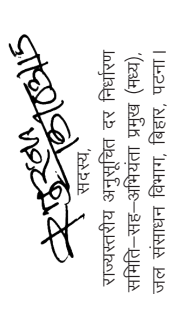 सदस्य,
राज्यस्तरीय अनुसूचित दर निर्धारण
समिति–सह–अभियंता प्रमुख (मध्य),
जल संसाधन विभाग, बिहार, पटना।